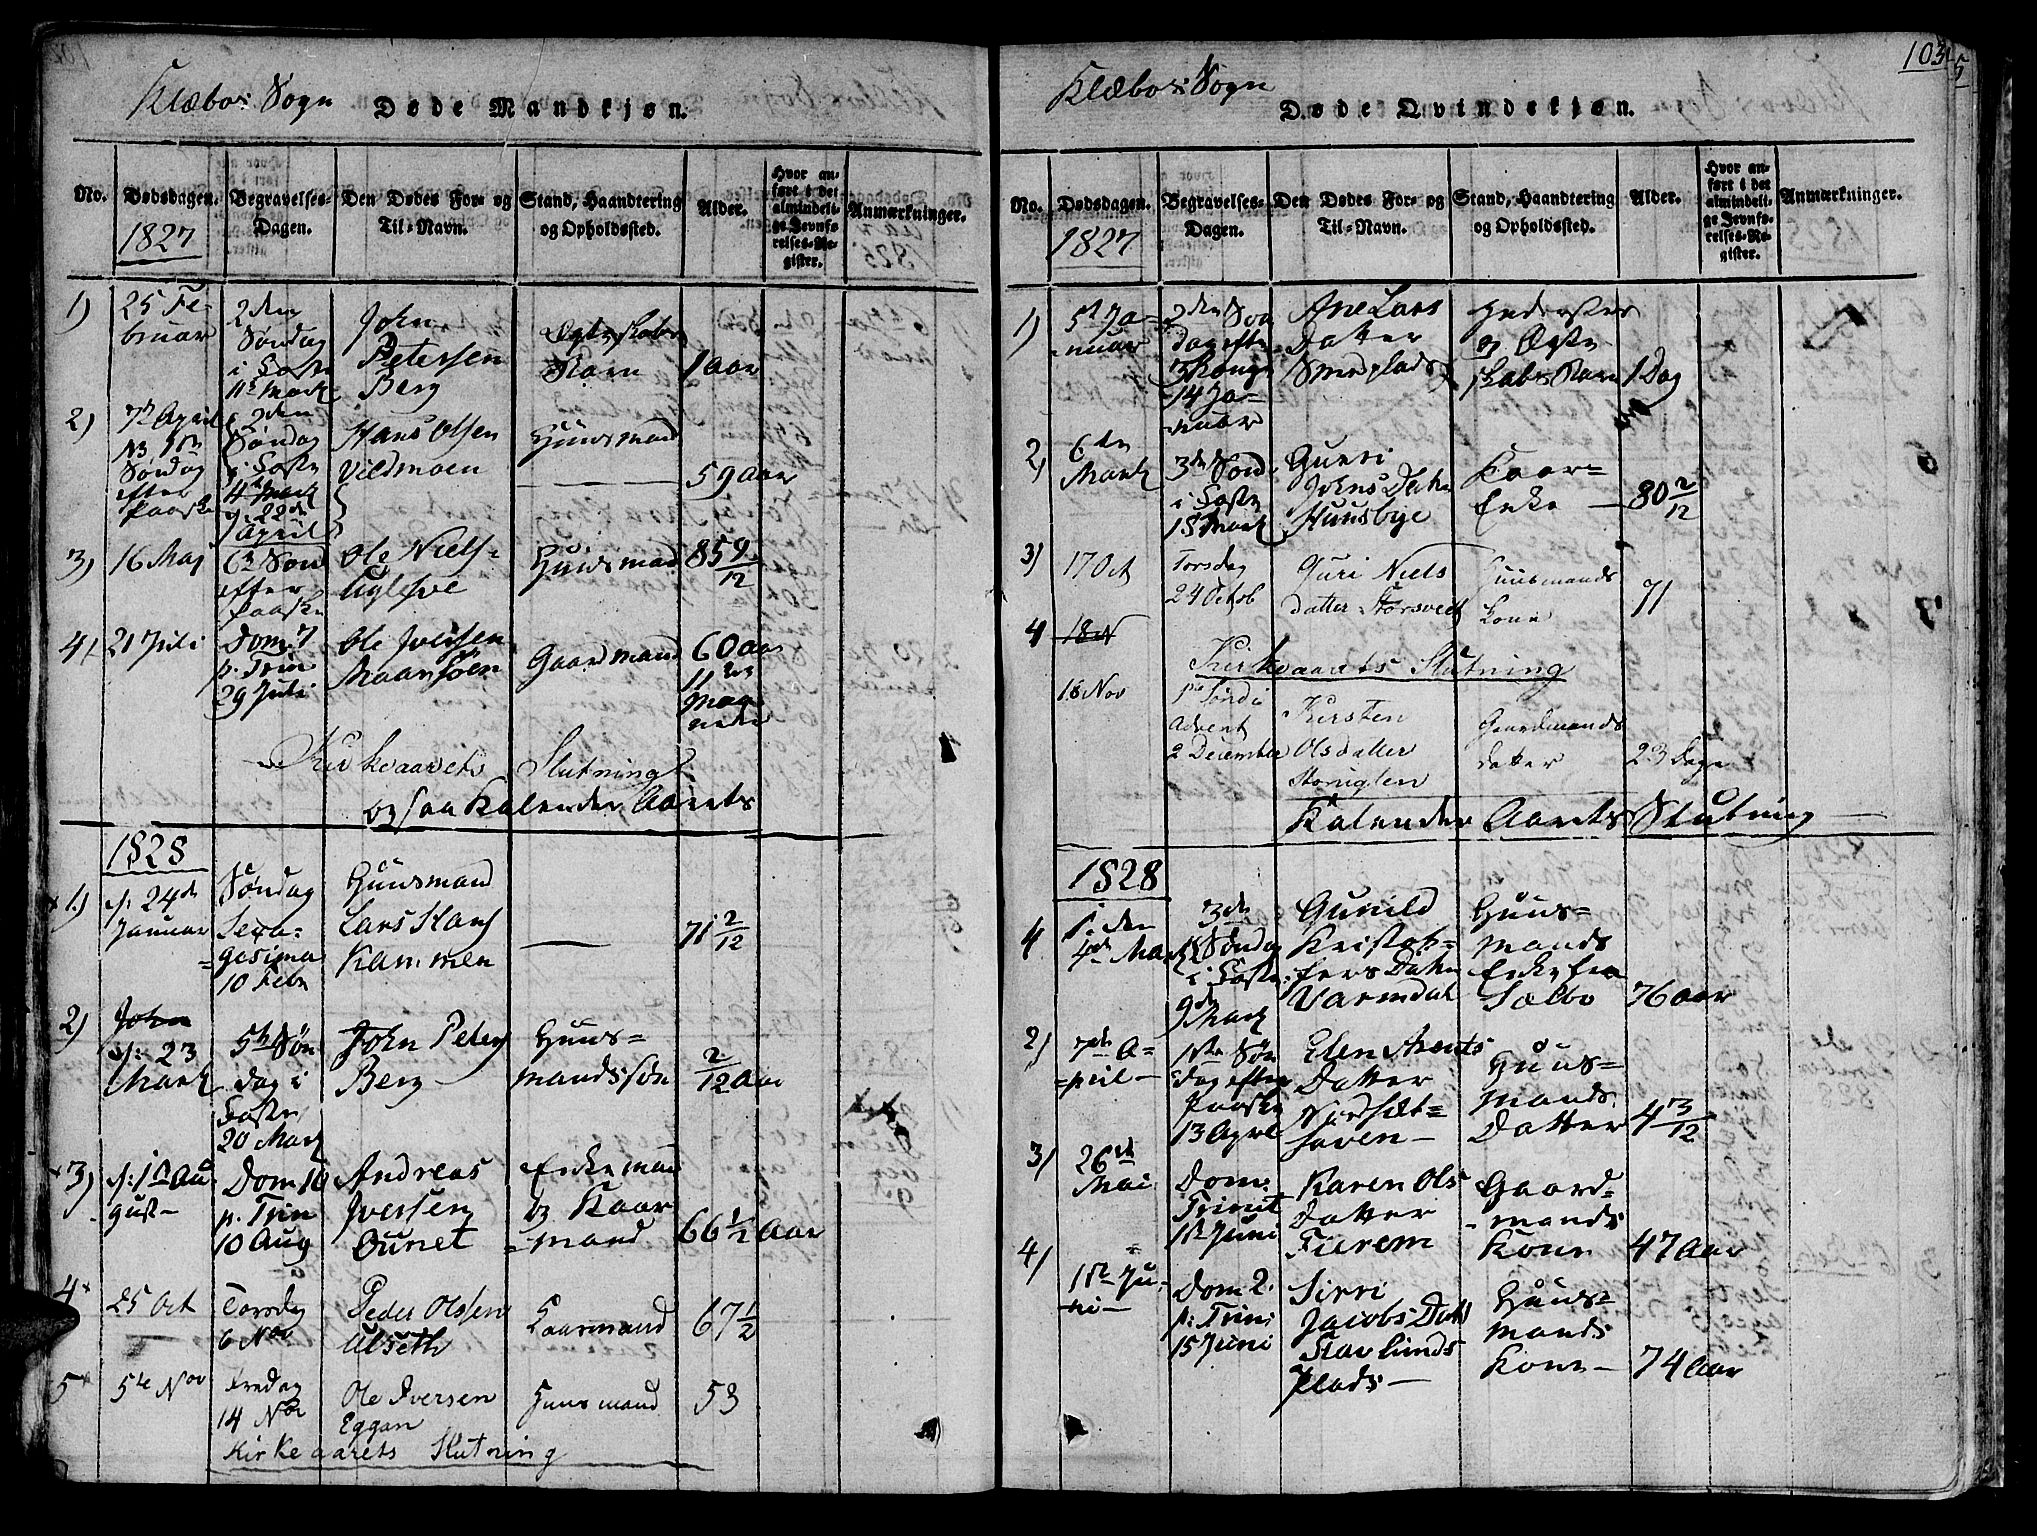 Klæboe Sogn
Døde Mandkjøn.
No.
Dødsdagen.
1827
Begravelses-
Dagen.
Den Dødes For- og
Til-Navn.
Stand, Haandtering
og Opholdssted.
Alder.
Hvor an-
ført i det
almindeli-
ge Jevnfø-
relses-Re-
gister.
Anmærkninger.
1)
25 Fe-
bruar
2den
Søndag
i Faste
11te Martz
John
Petersen
Berg
Ægteskabs
Barn
1 aar
2)
7de April
Søndag
efter
Paaske
2den
Søndag
i Faste
4de Martz
22de
April
Hans Olsen
Vildmoen
Huusmand
59 aar
3)
16 Maj
6te Sønd
efter
Paaske
Ole Niels-
Ugleøie
Huusmand
85 9/12
4)
21 Juli
Dom. 7
p. Trin
29 Juli
Ole Iversen
Gaardmand
60 aar
11
Kirkeaarets Slutning
og saa Kalender Aarets
1828
1)
d: 24de
Januar
Søndag
Sexa-
gesima
10 Febr
Huusmand
Lars
Kammen
71 2/12
2)
John
d: 23
Martz
5te Søn
dag i
Faste
20 Martz
John Peters
Berg
Huus-
mandssøn
2/12 Aar
3)
d: 1 Au
gust
Dom 10
p. Trin
10 Aug
Andreas
Iversen
Enkeman
og Kaar
mand
66 1/2 Aar
4
25 Oct
Torsdag
6 Nov
Peder Olsen
Ulseth
Kaarmand
67 1/2
5
5te Nov
Fredag
14 Nov
Ole Iversen
Eggan
Huusmand
53
Kirkeaarets Slutning
103
Klæboe Sogn
Døde Qvindekjøn.
No.
Dødsdagen.
1827
Begravelses-
Dagen.
Den Dødes For- og
Til-Navn.
Stand, Haandtering
og Opholdssted.
Alder.
Hvor an-
ført i det
almindeli-
ge Jevnfø-
relses-Re-
gister.
Anmærkninger.
1)
5te Ja-
nuar
2den Søn
dag efter
3 Konge
14 Ja-
nuar
Ane Lars
Datter
Smedplads
og Ægte-
skabs Barn
1 Dag
2)
6te
Martz
3die Sønd.
i Faste
18 Martz
Guri
Johns Datter
Huusbye
Kaar-
Enke
80 2/12
3)
17 Oct
Torsdag
24 Octob
Guri Niels
datter Storsvedt
Huusmands
Kone
71
4
18 N
Kirkeaarets Slutning
18 Nov
1ste Søndi
Advent
2 December
Kirsten
Olsdatter
Storuglen
Gaardmands
datter
23 Dage
Kalender Aarets Slutning
1828
4
d. den
4de Martz
3de
Søndag
i Faste
9de
Martz
Gunild
Kristof-
fers Datter
Varmdal
Huus-
mands
Enke fra
Sælbo
76 Aar
2)
7de A-
pril
1ste Søn
dag efter
Paaske
13 April
Elen Arents
Datter
Nordsæt-
Huus-
mands
Datter
4 3/12
3)
26de
Mai
Dom.
Trinit
1ste Juni
Karen Ols
Datter
Fiærem
Gaard-
mands
Kone
47 Aar
4)
1ste Ju-
ni
Dom 2.
p: Trini
15 Juni
Sirri
Jacobs Dat
Plads
Huus-
mands
Kone
74 Aar